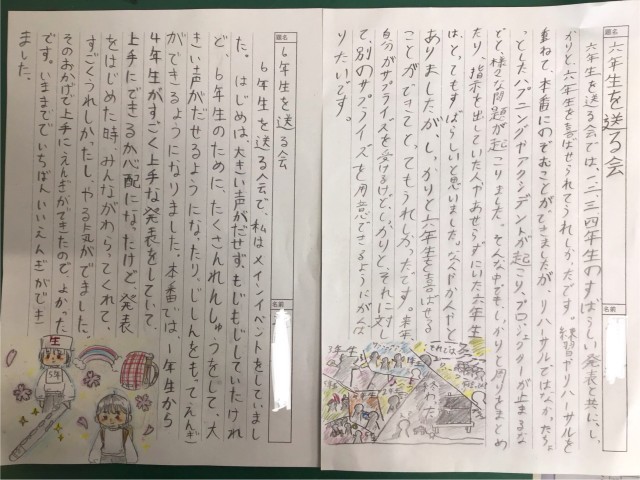 題名
六年生を送る会
名前
六年生を送る会では、二三四年生のすばらしい発表と共に、し
かりと、六年生を喜ばせられてうれしかったです。練習やリハーサルを
重ねて、本番にのぞむことができましたが、リハーサルではなかったちょ
っとしたハプニングやアクシデントが起こり、プロジェクターが止まるな
どと、様々な問題が起こりました。そんな中でも、しっかりと周りをまとめ
たり、指示を出していた人やあせらずにいた六年生
はとってもすばらしいと思いました。
ありましたが、しっかりと六年生を喜ばせる
ことができてとってもうれしかったです。来年
自分がサプライズを受けるけど、しっかりとそれに対し
て、別のサプライズを用意できるようにがんば
りたいです。
題名
6年生を送る会
名前
6年生を送る会で、私はメインイベントをしていまし
た。はじめは、大きい声がだせず、もじもじしていたけれ
ど、6年生のために、たくさんれんしゅうをして、大
きい声がだせるようになったり、じしんをもってえんぎ
ができるようになりました。本番では、1年生から
4年生がすごく上手な発表をしていて
上手にできるか心配になったけど、発表
をはじめた時、みんながわらってくれて、
すごくうれしかったし、やる気がでました。
そのおかげで上手にえんぎができたので、よかった
です。いままででいちばんいいえんぎができ
ました。
5年